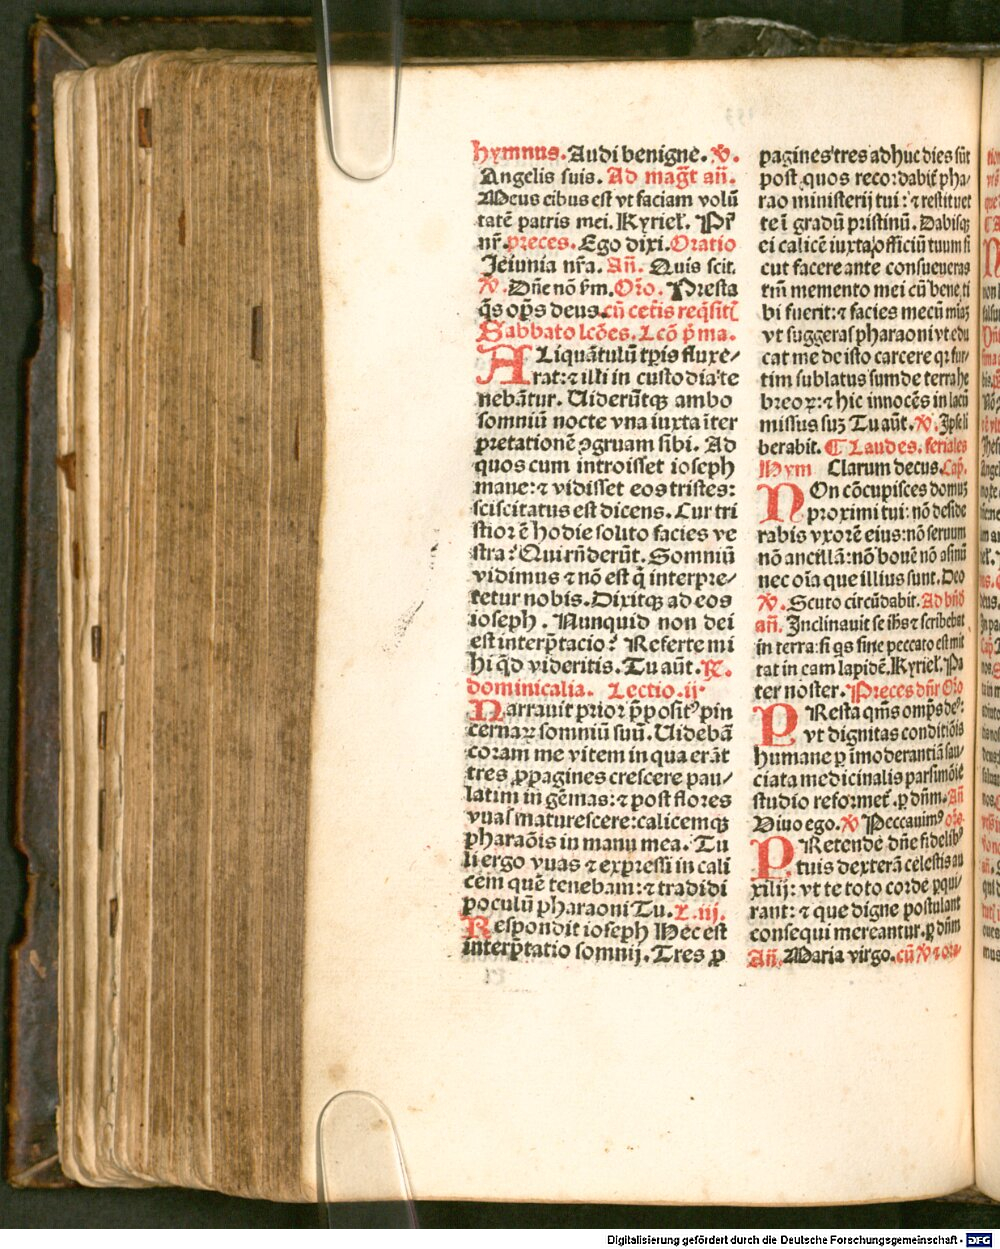 hymnus. Audi benigne. ℣.
Angelis suis. Ad mag̃t añ.
Meus cibus est vt faciam volũ
tatẽ patris mei. Kyriel̃. Pr̃
nr̃. preces. Ego dixi. Oratio
Jeiunia nr̃a. Añ. Quis scit.
℣. Dñe nõ ẜm. Orõ. Presta
q̃s op̃s deus. cũ cet̃is req̃sitꝭ
Sabbato lcões. Lcõ p̃ma.
ALiquãtulũ tp̃is fluxe⸗
rat: ⁊ illi in custodia te
nebãtur. Uiderũtqꝫ ambo
somniũ nocte vna iuxta ĩter
pretationẽ ꝯgruam sibi. Ad
quos cum introisset ioseph
mane: ⁊ vidisset eos tristes:
sciscitatus est dicens. Cur tri
stior ẽ hodie solito facies ve
stra? Qui rñderũt. Somniũ
vidimus ⁊ nõ est q̃ interpre⸗
tetur nobis. Dixitqꝫ ad eos
ioseph. Nunquid non dei
est interp̃tacio? Referte mi
hi qd̃ videritis. Tu aũt. ℟.
dominicalia. Lectio .ij.
Narrauit prior p̃posit⁹ pin
cernaꝝ somniũ suũ. Uidebã
coram me vitem in qua erãt
tres ꝓpagines crescere pau⸗
latim in gẽmas: ⁊ post flores
vuas maturescere: calicemqꝫ
pharaõis in manu mea. Tu
li ergo vuas ⁊ expressi in cali
cem quẽ tenebam: ⁊ tradidi
poculũ pharaoni Tu. L. iij.
Respondit ioseph Hec est
interp̃tatio somnij. Tres ꝓ
pagines tres adhuc dies sũt
post quos recordabit̃ pha⸗
rao ministerij tui: ⁊ restituet
te ĩ gradũ pristinũ. Dabisqꝫ
ei calicẽ iuxta officiũ tuum si
cut facere ante consueueras
tm̃ memento mei cũ bene ti
bi fuerit: ⁊ facies mecũ miaꝫ
vt suggeras pharaoni vt edu
cat me de isto carcere qꝛ fur⸗
tim sublatus sum de terra he
breoꝝ: ⁊ hic innocẽs in lacũ
missus suꝫ Tu aũt. ℣. Ipse li
berabit. ¶ Laudes. feriales
Hym Clarum decus. Cap̃.
NOn cõcupisces domuꝫ
proximi tui: nõ deside
rabis vxorẽ eius: nõ seruum
nõ ancillã: nõ bouẽ nõ asinũ
nec oĩa que illius sunt. Deo
℣. Scuto circũdabit. Ad bñd̃
añ. Inclinauit se ih̃s ⁊ scribebat
in terra: si q̃s sine peccato est mit
tat in eam lapidẽ. Kyriel̃. Pa
ter noster. Preces dñr Orõ
PResta q̃ms omp̃s de⁹:
vt dignitas conditiõis
humane ꝑ ĩmoderantiã sau⸗
ciata medicinalis parsimõie
studio reformet̃. ꝑ dñm. Añ
Viuo ego. ℣ Peccauim⁹ orõ.
PRetende dñe fidelib⁹
tuis dexterã celestis au
xilij: vt te toto corde ꝑqui⸗
rant: ⁊ que digne postulant
consequi mereantur. ꝑ dñm
Añ. Maria virgo. cũ ℣ ⁊ orõ.
Digitalisierung gefördert durch die Deutsche Forschungsgemeinschaft - DFG